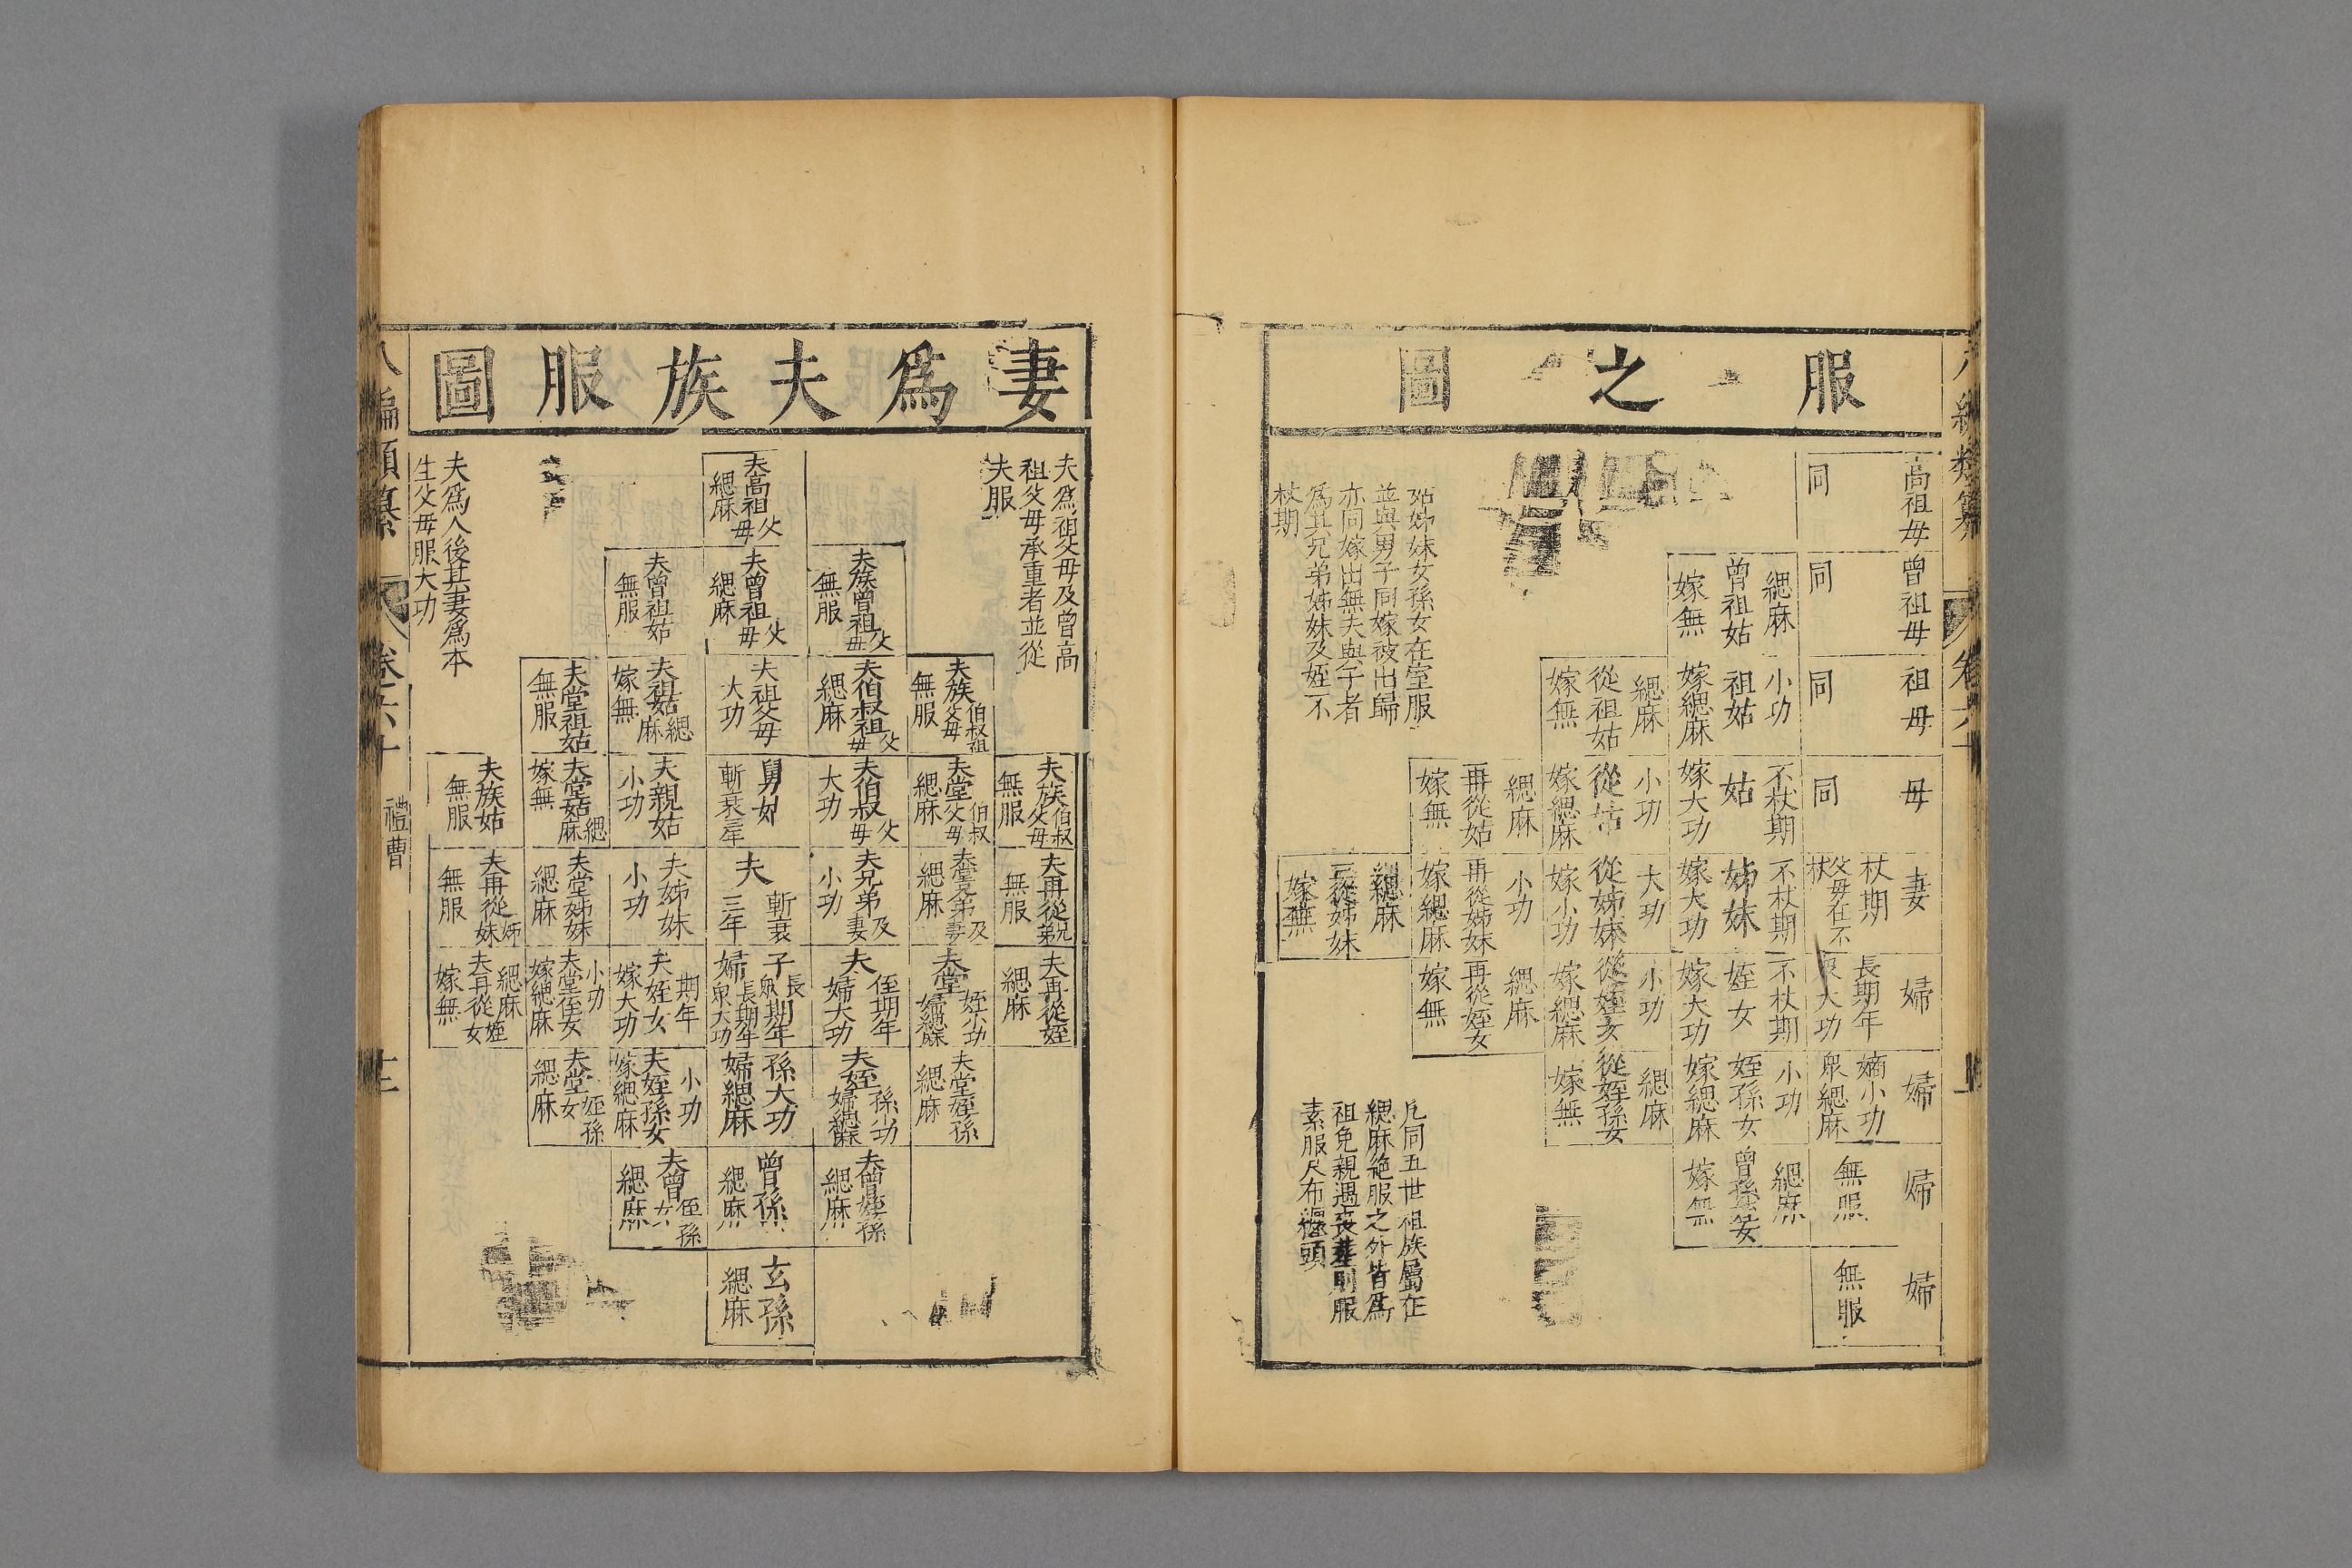 服之圖
高祖母
同
曾祖母
同
緦麻
曾祖姑
嫁無
祖母
同
小功
祖姑
嫁緦麻
緦麻
從祖姑
嫁無
母
同
不杖期
姑
嫁大功
小功
從姑
嫁緦麻
緦麻
再從姑
嫁無
妻
杖期
父母在不
杖
不杖期
姊妹
嫁大功
大功
從姊妹
嫁小功
小功
再從姊妹
嫁緦麻
緦麻
三從姊妹
嫁無
婦
長期年
眾大功
不杖期
姪女
嫁大功
小功
從姪女
嫁緦麻
緦麻
再從姪女
嫁無
婦
嫡小功
眾緦麻
小功
姪孫女
嫁緦麻
緦麻
從姪孫女
嫁無
婦
無服
緦麻
曾孫姪女
嫁無
婦
無服
姑姊妹女孫女在室服
並與男子同嫁被出歸
亦同嫁出無夫與子者
為其兄弟姊妹及姪不
杖期
凡同五世祖族屬在
緦麻絕服之外皆為
祖免親遇喪葬則服
素服尺布纏頭
妻為夫族服圖
夫為祖父母及曾高
祖父母承重者並從
夫服
夫高祖父母
緦麻
夫族曾祖父母
無服
夫曾祖父母
緦麻
夫曾祖姑
無服
夫族伯叔祖父母
無服
夫伯叔祖父母
緦麻
夫祖父母
大功
夫祖姑緦麻
嫁無
夫堂祖姑
無服
夫族伯叔父母
無服
夫堂伯叔父母
緦麻
夫伯叔父母
大功
舅姑
斬衰三年
夫親姑
小功
夫堂姑緦麻
嫁無
夫族姑
無服
夫再從兄弟
無服
夫堂兄弟及妻
緦麻
夫兄弟及妻
小功
夫
斬衰
三年
夫姊妹
小功
夫堂姊妹
緦麻
夫再從姊妹
無服
夫再從姪
緦麻
夫堂姪小功
婦緦麻
夫侄期年
婦大功
子長眾期年
婦長期年眾大功
期年
夫姪女
嫁大功
小功
夫堂侄女
嫁緦麻
緦麻
夫再從姪女
嫁無
夫堂姪孫
緦麻
夫姪孫小功
婦緦麻
孫大功
婦緦麻
小功
夫姪孫女
嫁緦麻
夫堂姪孫女
緦麻
夫曾姪孫
緦麻
曾孫
緦麻
夫曾侄孫女
緦麻
玄孫
緦麻
夫為人後其妻為本
生父母服大功
八編類纂
卷六十
禮曹